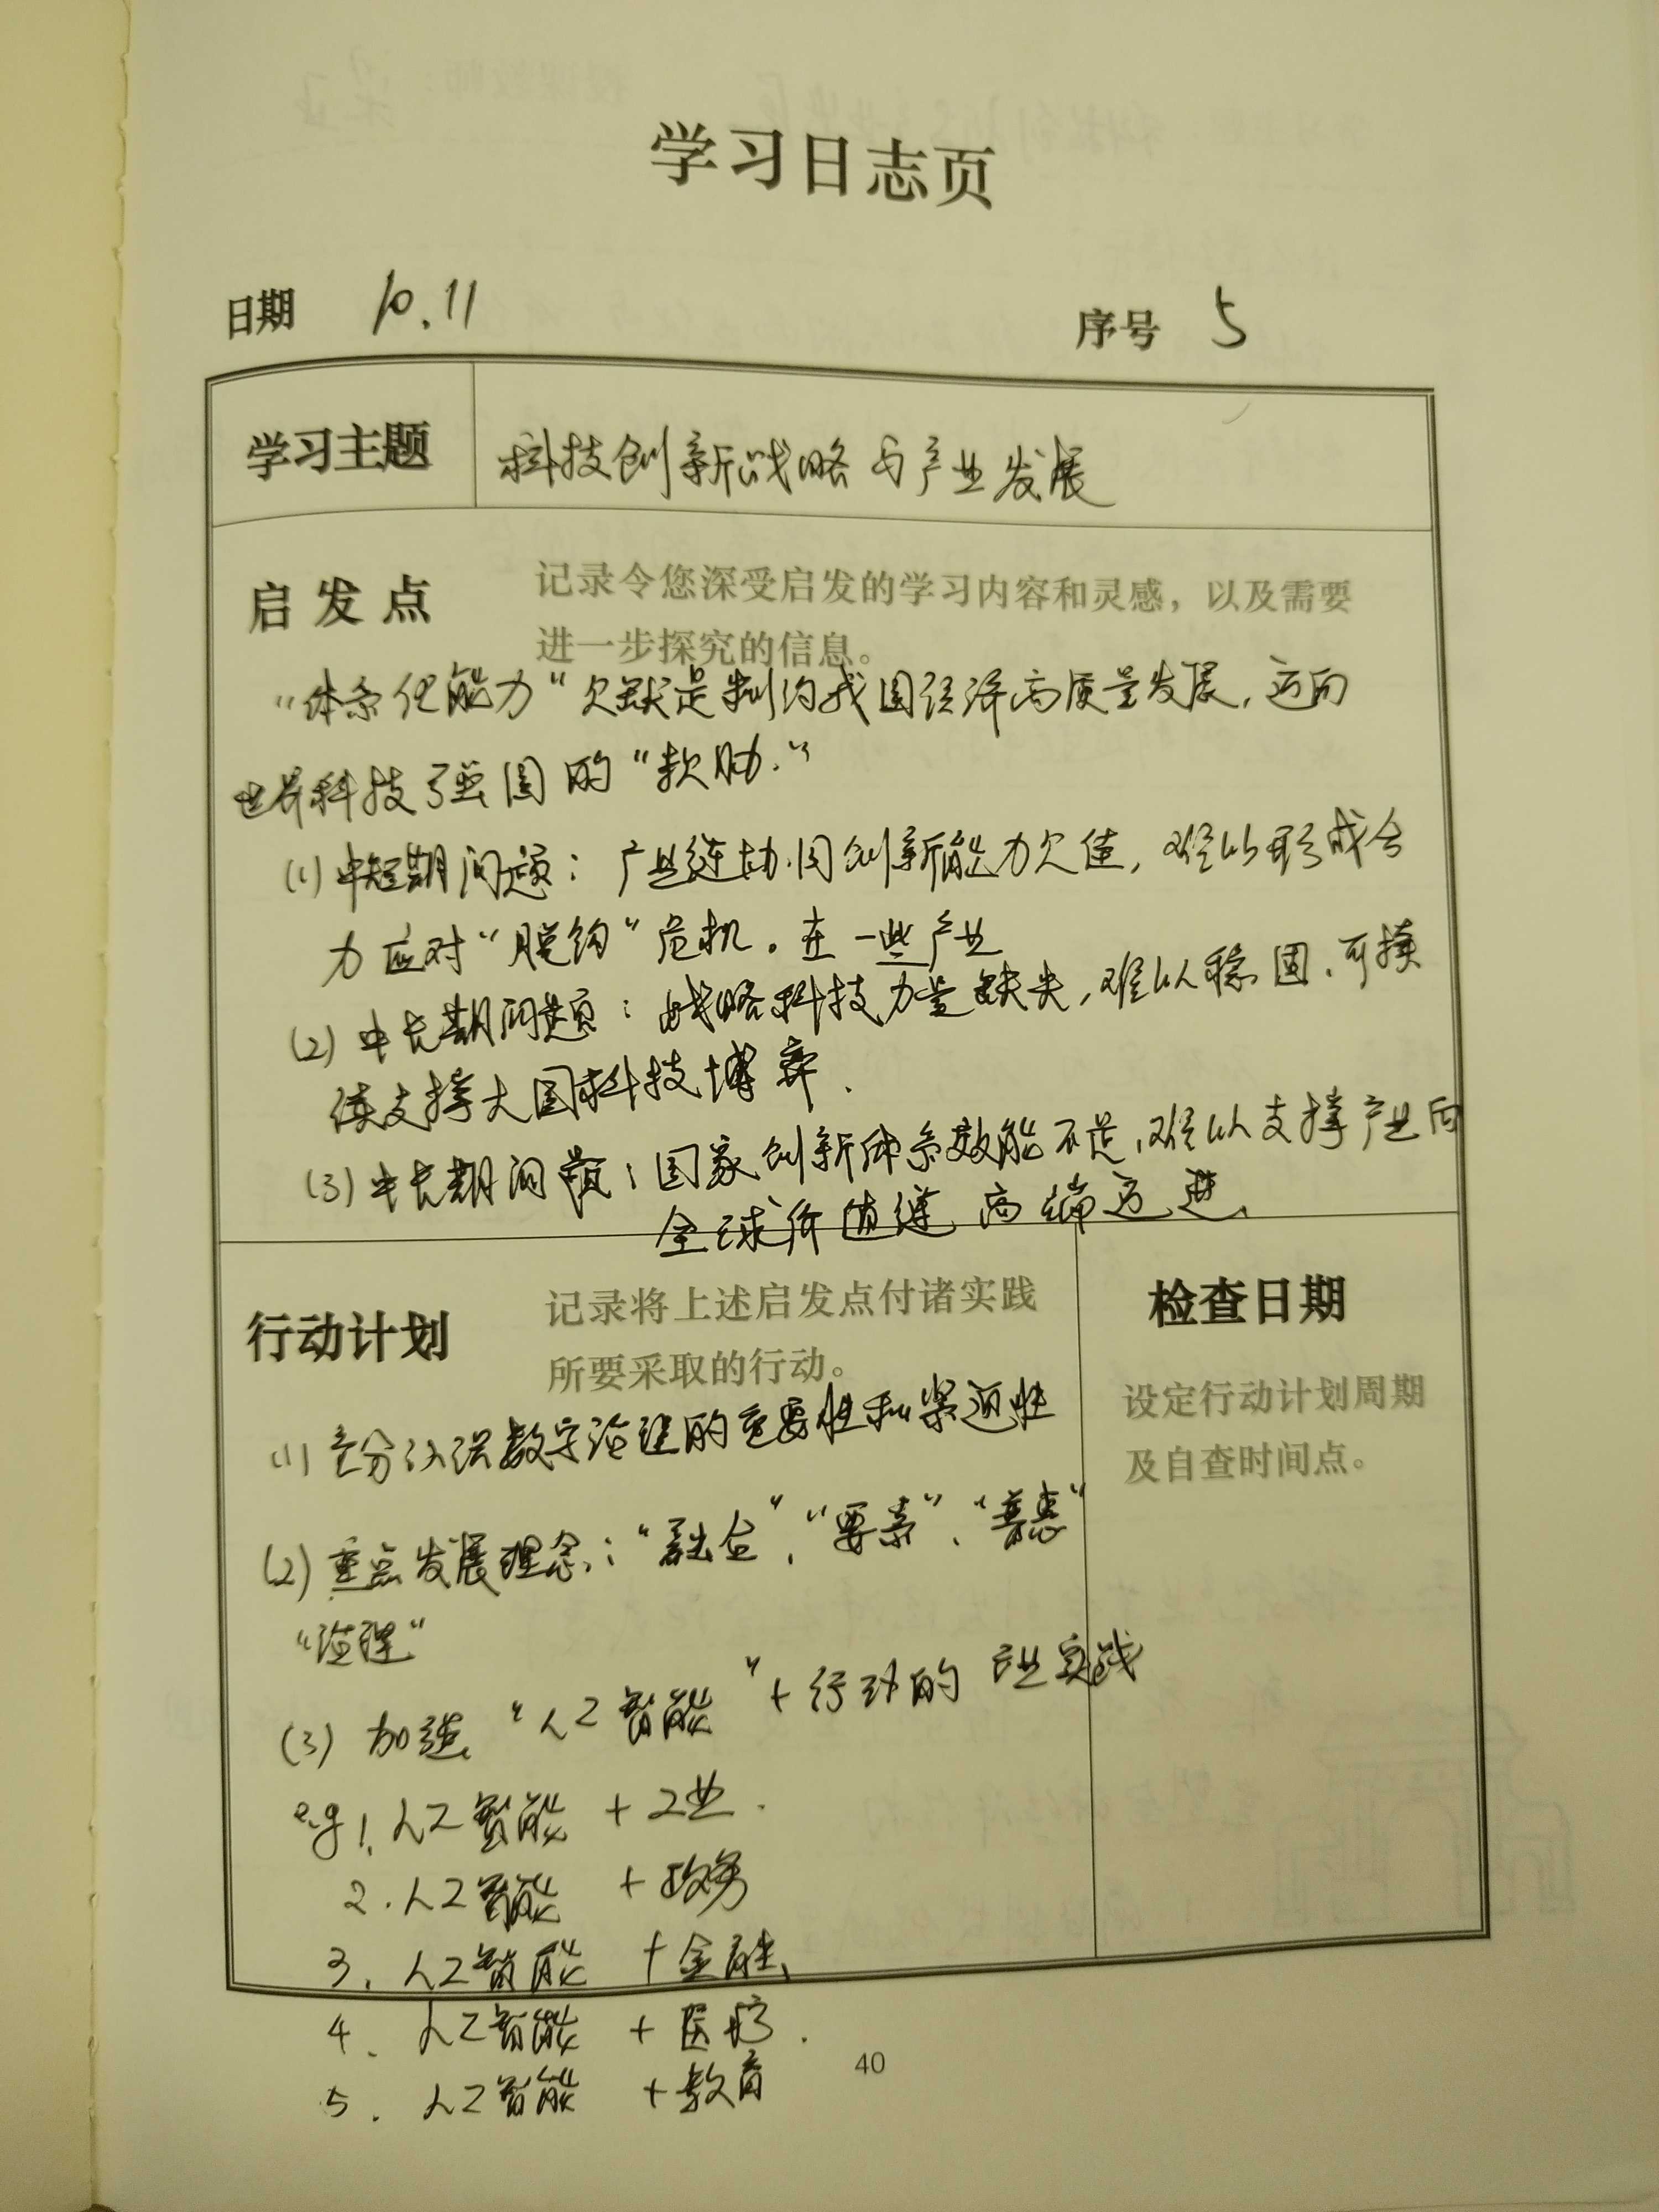 学习日志页
日期 10.11 序号 5
学习主题 科技创新战略与产业发展
启发点 记录令您深受启发的学习内容和灵感，以及需要
进一步探究的信息。
“体系化能力”欠缺是制约我国经济高质量发展，迈向
世界科技强国的“软肋.”
(1) 中短期问题：产业链协同创新能力欠佳，难以形成合
力应对“脱钩”危机。在一些产业
(2) 中长期问题：战略科技力量缺失，难以稳固、可持
续支撑大国科技博弈.
(3) 中长期问题：国家创新体系效能不足，难以支撑产业向
全球价值链高端迈进
行动计划 记录将上述启发点付诸实践
所要采取的行动。
检查日期
设定行动计划周期
及自查时间点。
(1) 充分认识数字治理的重要性和紧迫性
(2) 重点发展理念：“融合”、“要素”、“普惠”
“治理”
(3) 加速“人工智能”+行动的产业实践
e.g 1. 人工智能 + 工业.
2. 人工智能 + 政务
3. 人工智能 + 金融
4. 人工智能 + 医疗.
5. 人工智能 + 教育
40